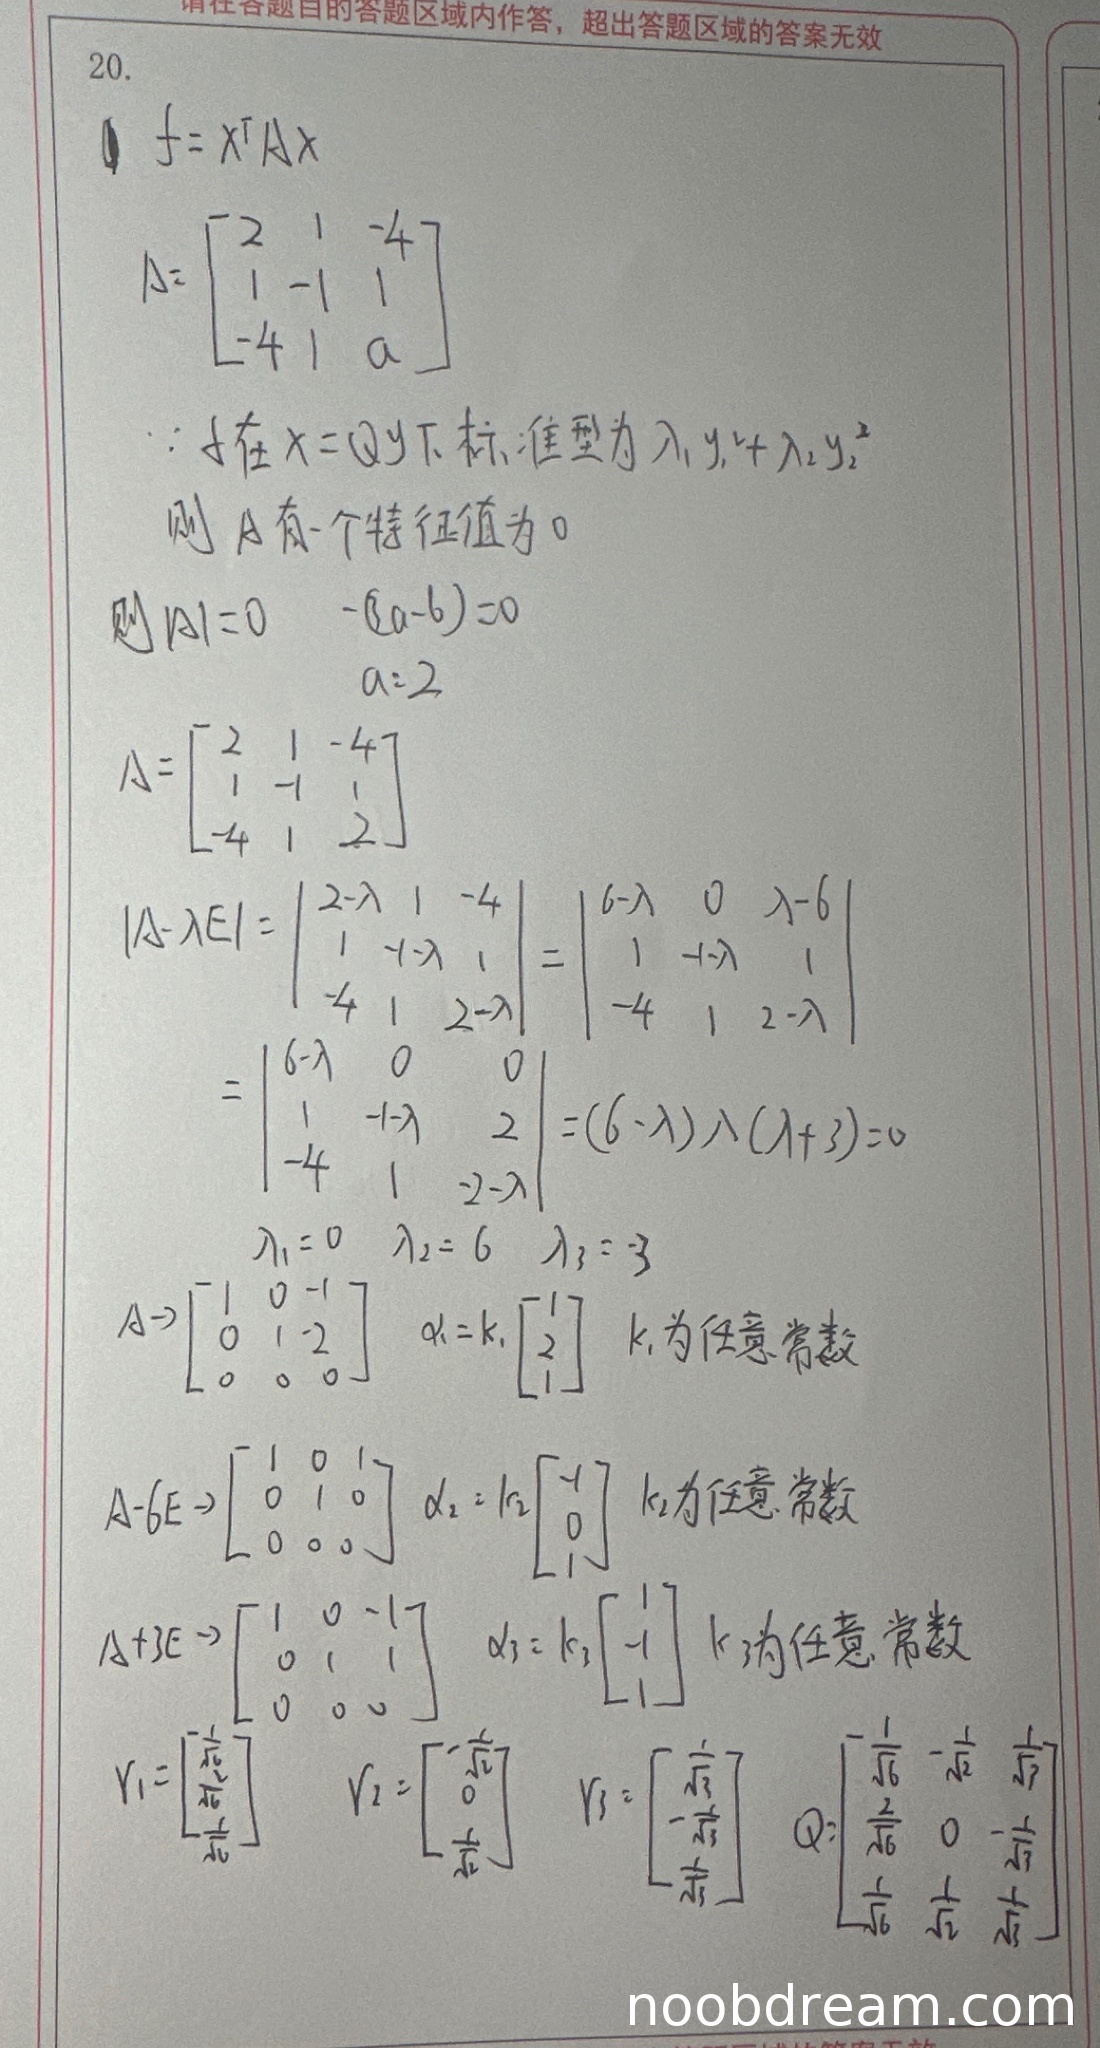 请在各题目的答题区域内作答，超出答题区域的答案无效
20.
f=xᵀAx
A= [2 1 -4; 1 -1 1; -4 1 a]
∵ f在x=Qy下标准型为λ₁y₁²+λ₂y₂²
则 A有一个特征值为0
则|A|=0 -(3a-6)=0
a=2
A= [2 1 -4; 1 -1 1; -4 1 2]
|A-λE| = |2-λ 1 -4; 1 -1-λ 1; -4 1 2-λ| = |6-λ 0 λ-6; 1 -1-λ 1; -4 1 2-λ|
= |6-λ 0 0; 1 -1-λ 2; -4 1 -2-λ| =(6-λ)λ(λ+3)=0
λ₁=0 λ₂=6 λ₃=-3
A→ [1 0 -1; 0 1 -2; 0 0 0] α₁=k₁ [1; 2; 1] k₁为任意常数
A-6E→ [1 0 1; 0 1 0; 0 0 0] α₂=k₂ [-1; 0; 1] k₂为任意常数
A+3E→ [1 0 -1; 0 1 1; 0 0 0] α₃=k₃ [1; -1; 1] k₃为任意常数
r₁= [1/√6; 2/√6; 1/√6] r₂= [-1/√2; 0; 1/√2] r₃= [1/√3; -1/√3; 1/√3] Q= [1/√6 -1/√2 1/√3; 2/√6 0 -1/√3; 1/√6 1/√2 1/√3]
noobdream.com